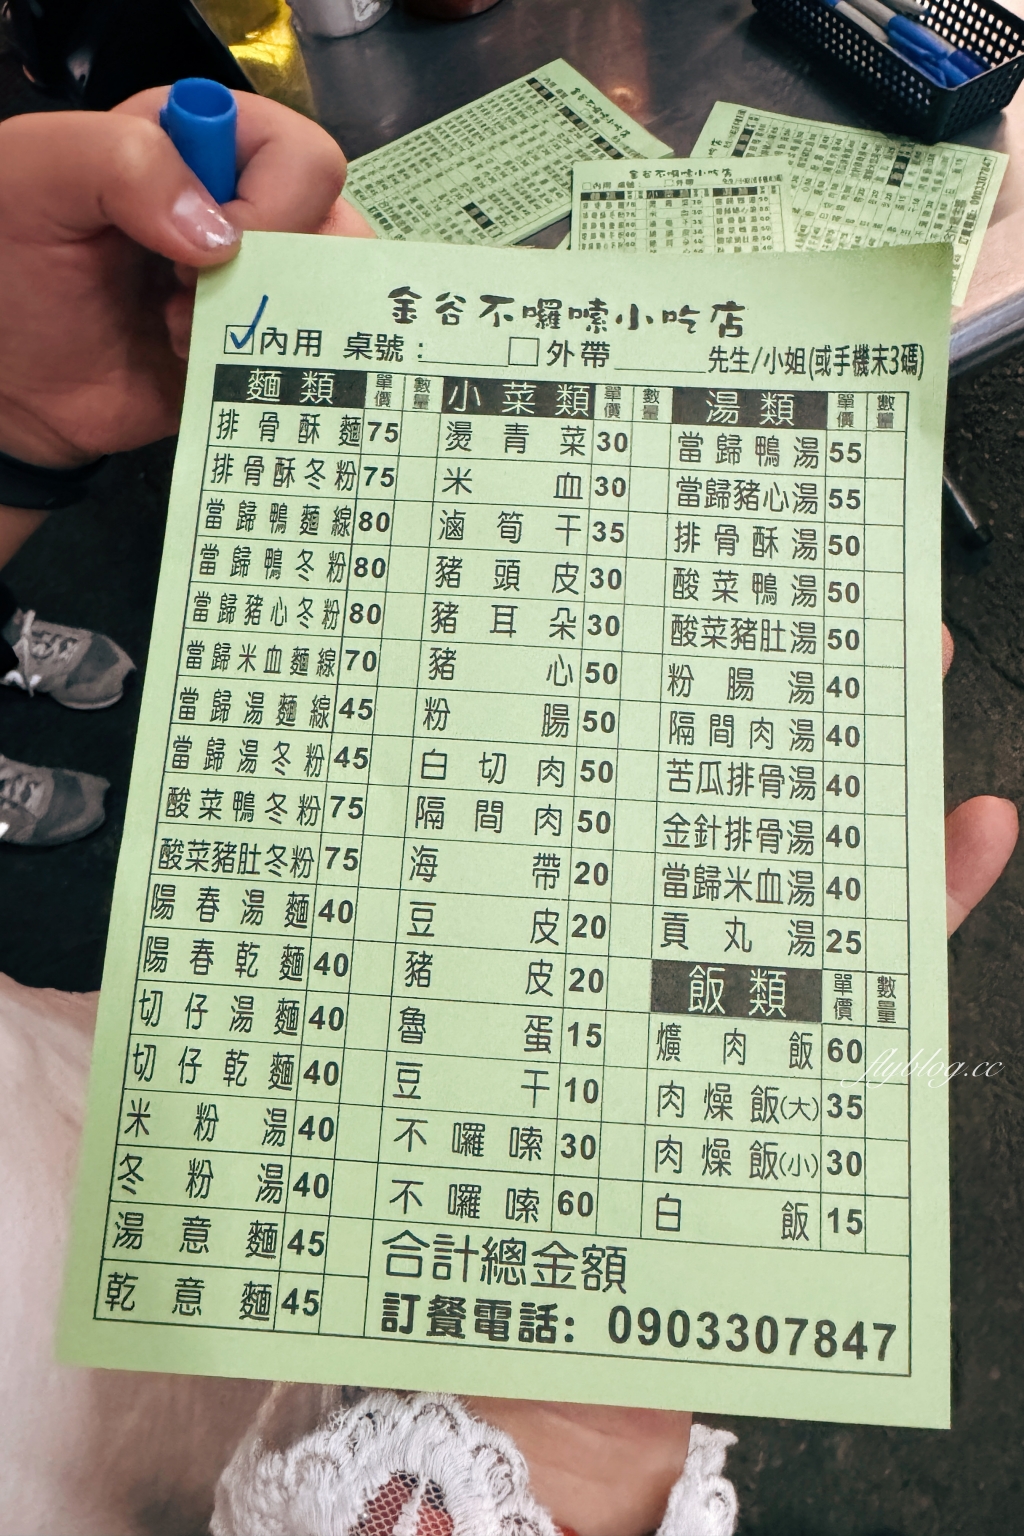 金谷不囉嗦小吃店
內用 桌號: 外帶 先生/小姐(或手機末3碼)
麵類 單價 數量
排骨酥麵 75
排骨酥冬粉 75
當歸鴨麵線 80
當歸鴨冬粉 80
當歸豬心冬粉 80
當歸米血麵線 70
當歸湯麵線 45
當歸湯冬粉 45
酸菜鴨冬粉 75
酸菜豬肚冬粉 75
陽春湯麵 40
陽春乾麵 40
切仔湯麵 40
切仔乾麵 40
米粉湯 40
冬粉湯 40
湯意麵 45
乾意麵 45
小菜類 單價 數量
燙青菜 30
米血 30
滷筍干 35
豬頭皮 30
豬耳朵 30
豬心 50
粉腸 50
白切肉 50
隔間肉 50
海帶 20
豆皮 20
豬皮 20
魯蛋 15
豆干 10
不囉嗦 30
不囉嗦 60
湯類 單價 數量
當歸鴨湯 55
當歸豬心湯 55
排骨酥湯 50
酸菜鴨湯 50
酸菜豬肚湯 50
粉腸湯 40
隔間肉湯 40
苦瓜排骨湯 40
金針排骨湯 40
當歸米血湯 40
貢丸湯 25
飯類 單價 數量
爌肉飯 60
肉燥飯(大) 35
肉燥飯(小) 30
白飯 15
合計總金額
訂餐電話: 0903307847
flyblog.cc
金谷不囉嗦小吃店
金谷不囉嗦小吃店